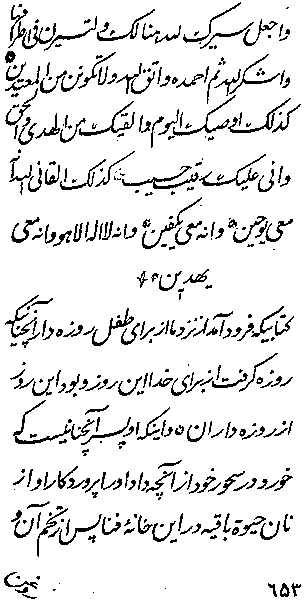 واجعل سیرک لله هنالک ولتسیرن فی اطرافنا
واشکر لله ثم احمده واتق الله ولا تکونن من المعتدین
کذلک اوصیک الیوم والقیک من الهدی والحق
وانی علیک رقیب حسیب کذلک القانی الله
معی یوحین وانه معی یکفین وانه لا اله الا هو وانه معی
یهدین
کتابیکه فرود آمد از نزد ما از برای طفل روزه دار آنچنانیکه
روزه گرفت از برای خدا این روز و بود این روز
از روزه داران و اینکه او پسر آنچنانیست که
خورد در سحور خود از آنچه داد او را پروردکار او از
نان حیوة باقیه در این خانهٔ فنا پس از تخم آن و
۶۵۳